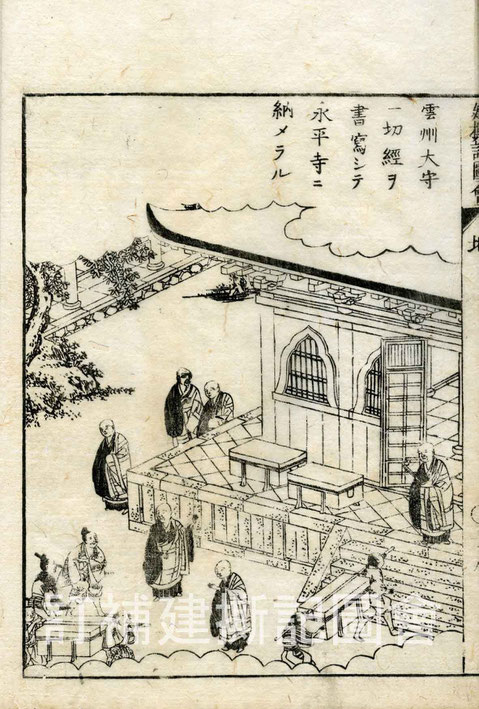 雲州大守
一切經ヲ
書寫シテ
永平寺ニ
納メラル
訂補建撕記圖會